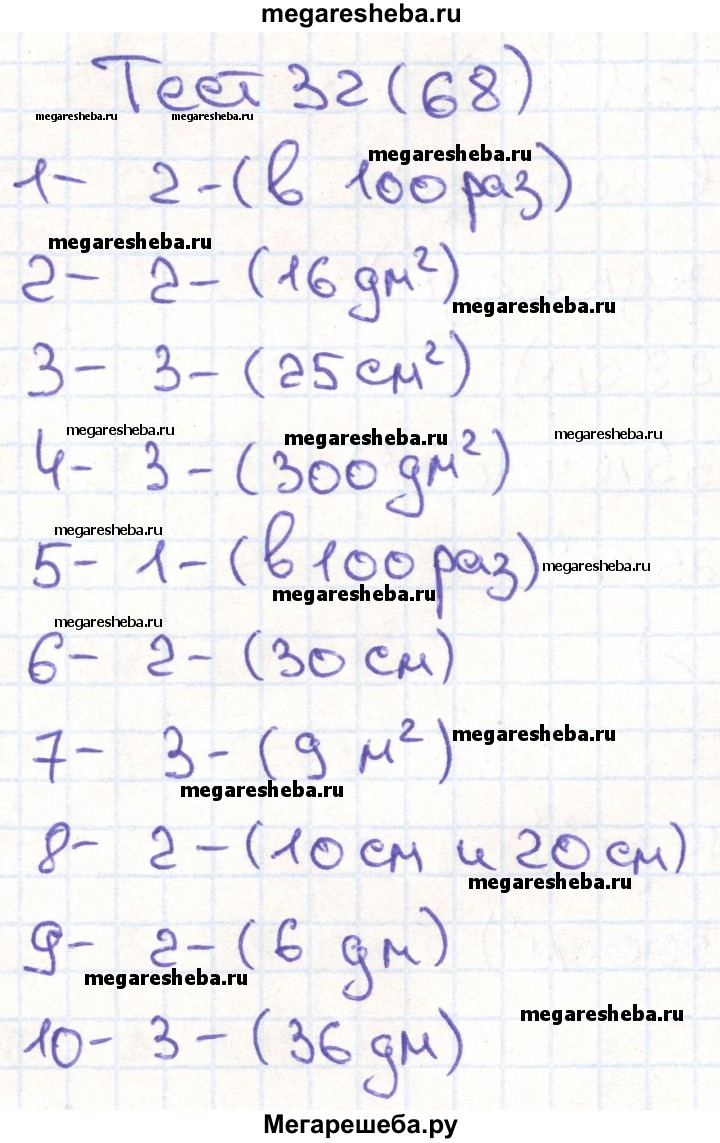 megaresheba.ru
Тест 32 (68)
megaresheba.ru megaresheba.ru
megaresheba.ru
1- 2-(в 100 раз)
megaresheba.ru
2- 2-(16 дм²)
megaresheba.ru
3- 3-(25 см²)
megaresheba.ru megaresheba.ru megaresheba.ru
4- 3-(300 дм²)
megaresheba.ru
5- 1-(в 100 раз)
megaresheba.ru
megaresheba.ru
megaresheba.ru
6- 2-(30 см)
7- 3-(9 м²)
megaresheba.ru
megaresheba.ru
8- 2-(10 см и 20 см)
megaresheba.ru
9- 2-(6 дм)
megaresheba.ru
megaresheba.ru
10- 3-(36 дм)
Мегарешеба.ру